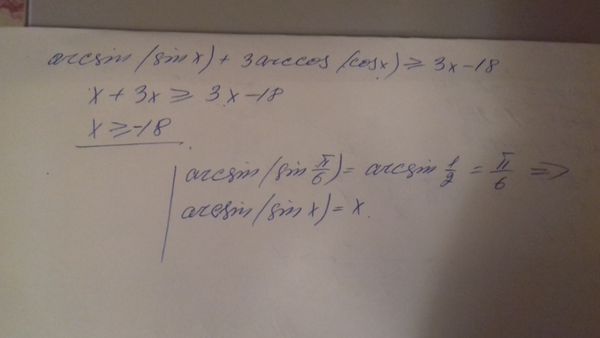 arcsin(sin x) + 3arccos(cos x) ≥ 3x-18
x + 3x ≥ 3x-18
x ≥ -18
arcsin(sin π/6) = arcsin 1/2 = π/6 =>
arcsin(sin x) = x.